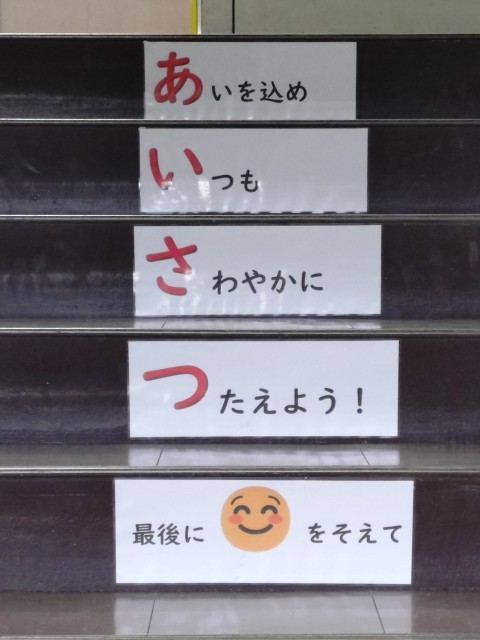 あいを込め
いつも
さわやかに
つたえよう！
最後に😊をそえて